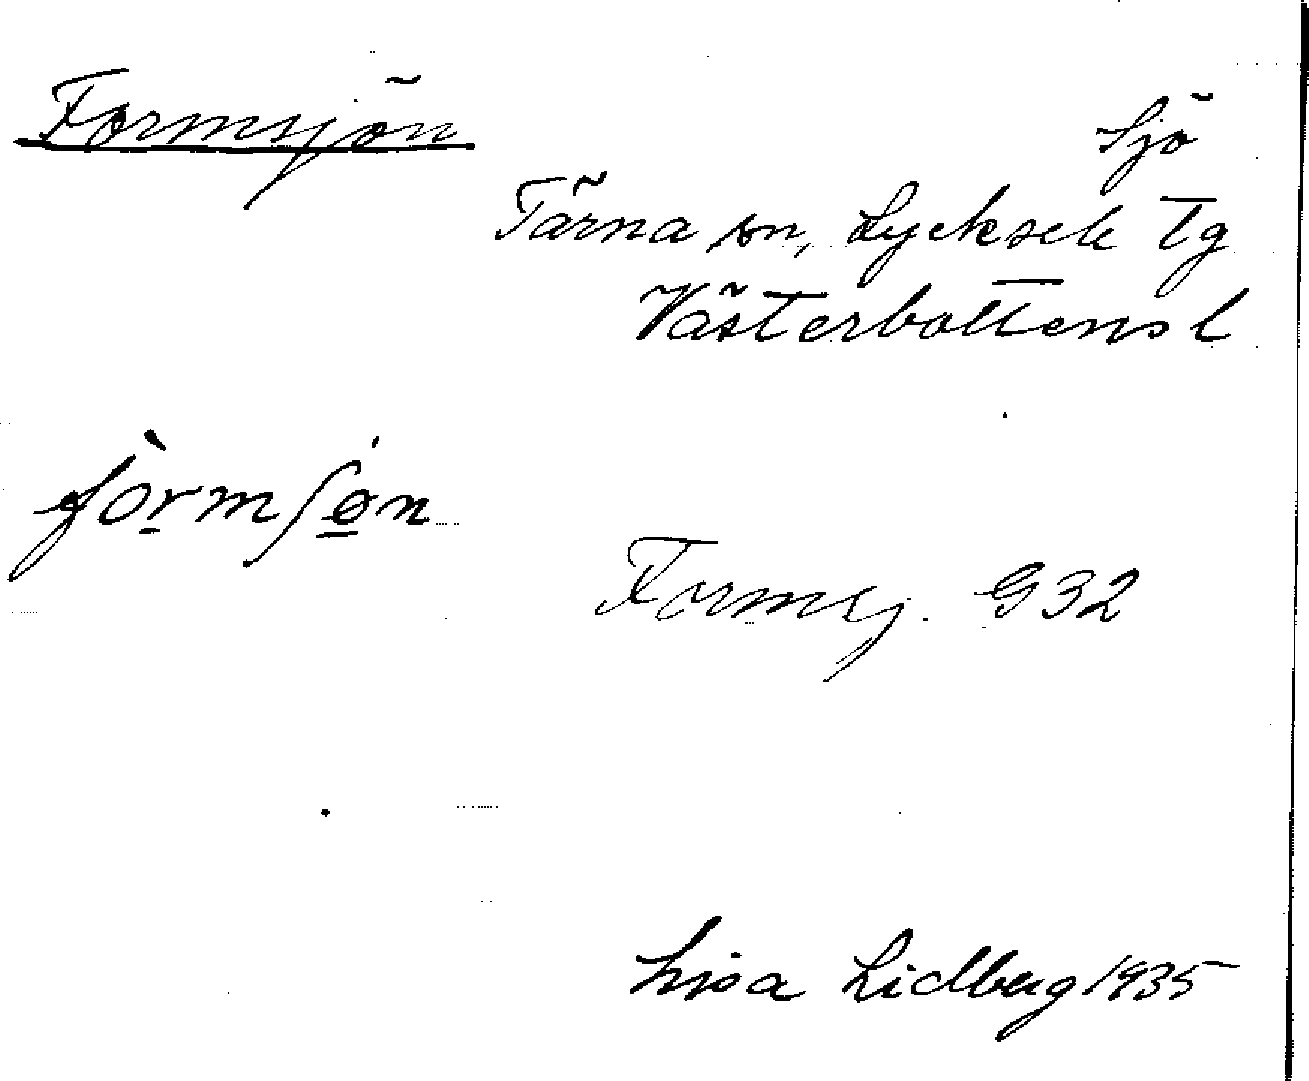 Formsjön
Sjö
Tärna sn, Lycksele Tg
Västerbottens l
fòrmʃøn
Formsj. G 32
Lisa Lidberg 1935